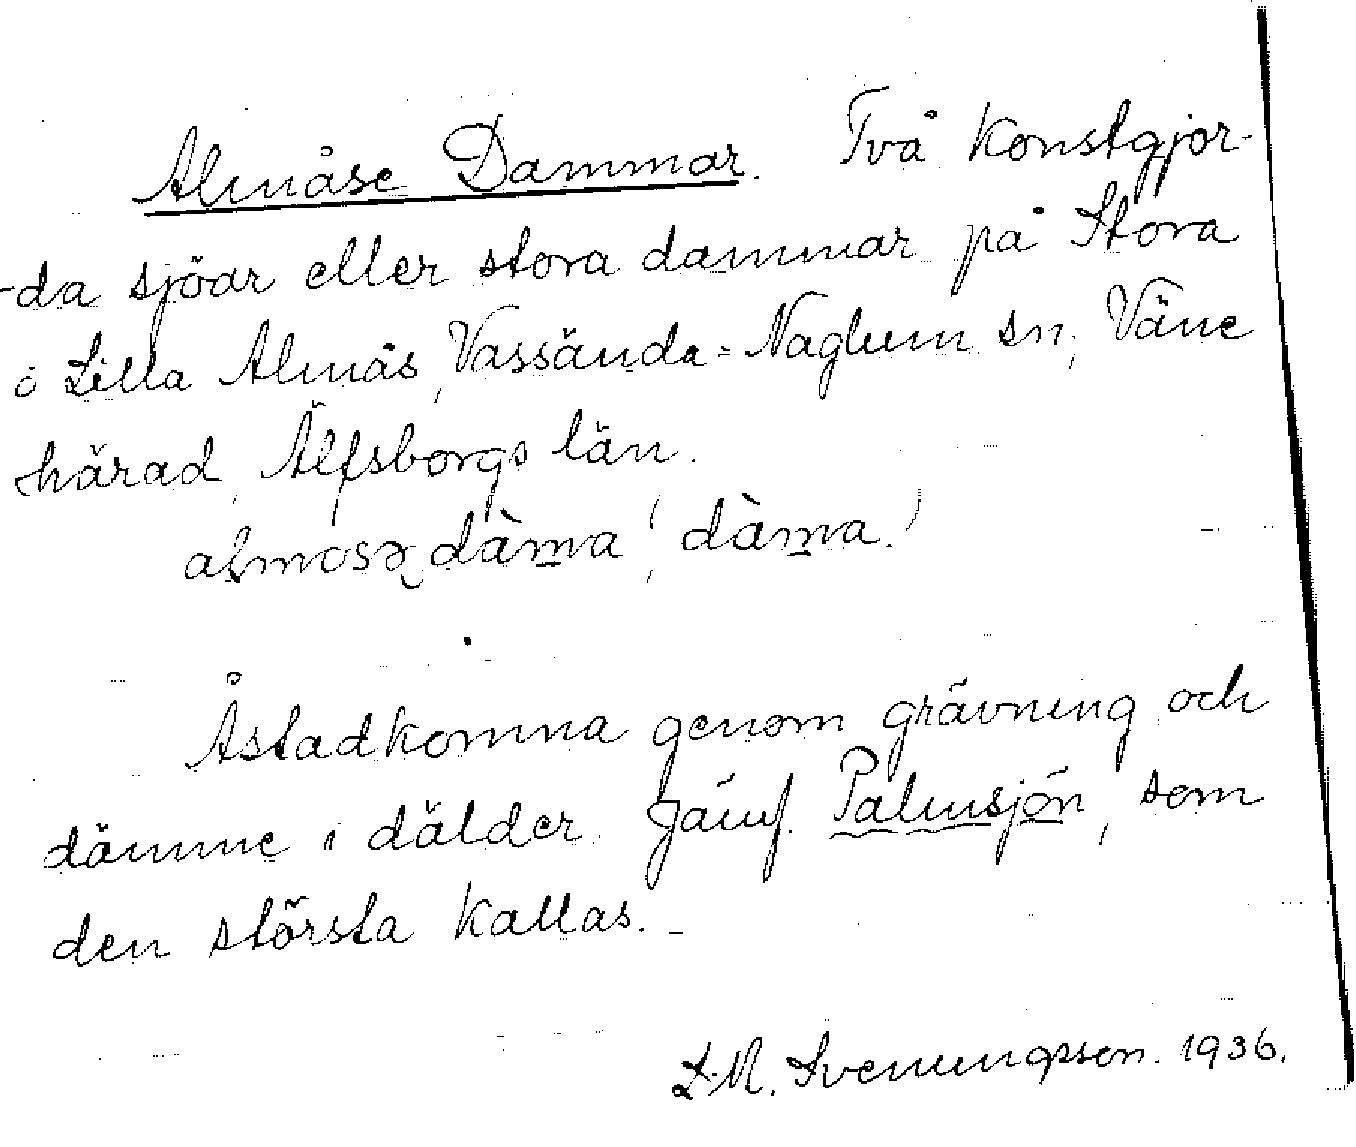 Almåse Dammar. Två konstgjor-
-da sjöar eller stora dammar på Stora
o Lilla Almås, Vassända-Naglum sn, Väne
härad, Älfsborgs län.
almosə dàma, (dàma.)
Åstadkomna genom grävning och
dämme i dälder. Jämf. Palmsjön, som
den största kallas.
L.M. Svenungsson. 1936.